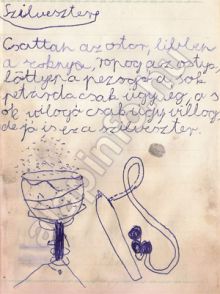 Szilveszter
Csattan az ostor, libben
a szoknya, ropog az ostya,
löttyen a pezsgő a sok
petárda csak úgy ég, a s
ok világó csak úgy villog
de jó is ez a szilveszter.